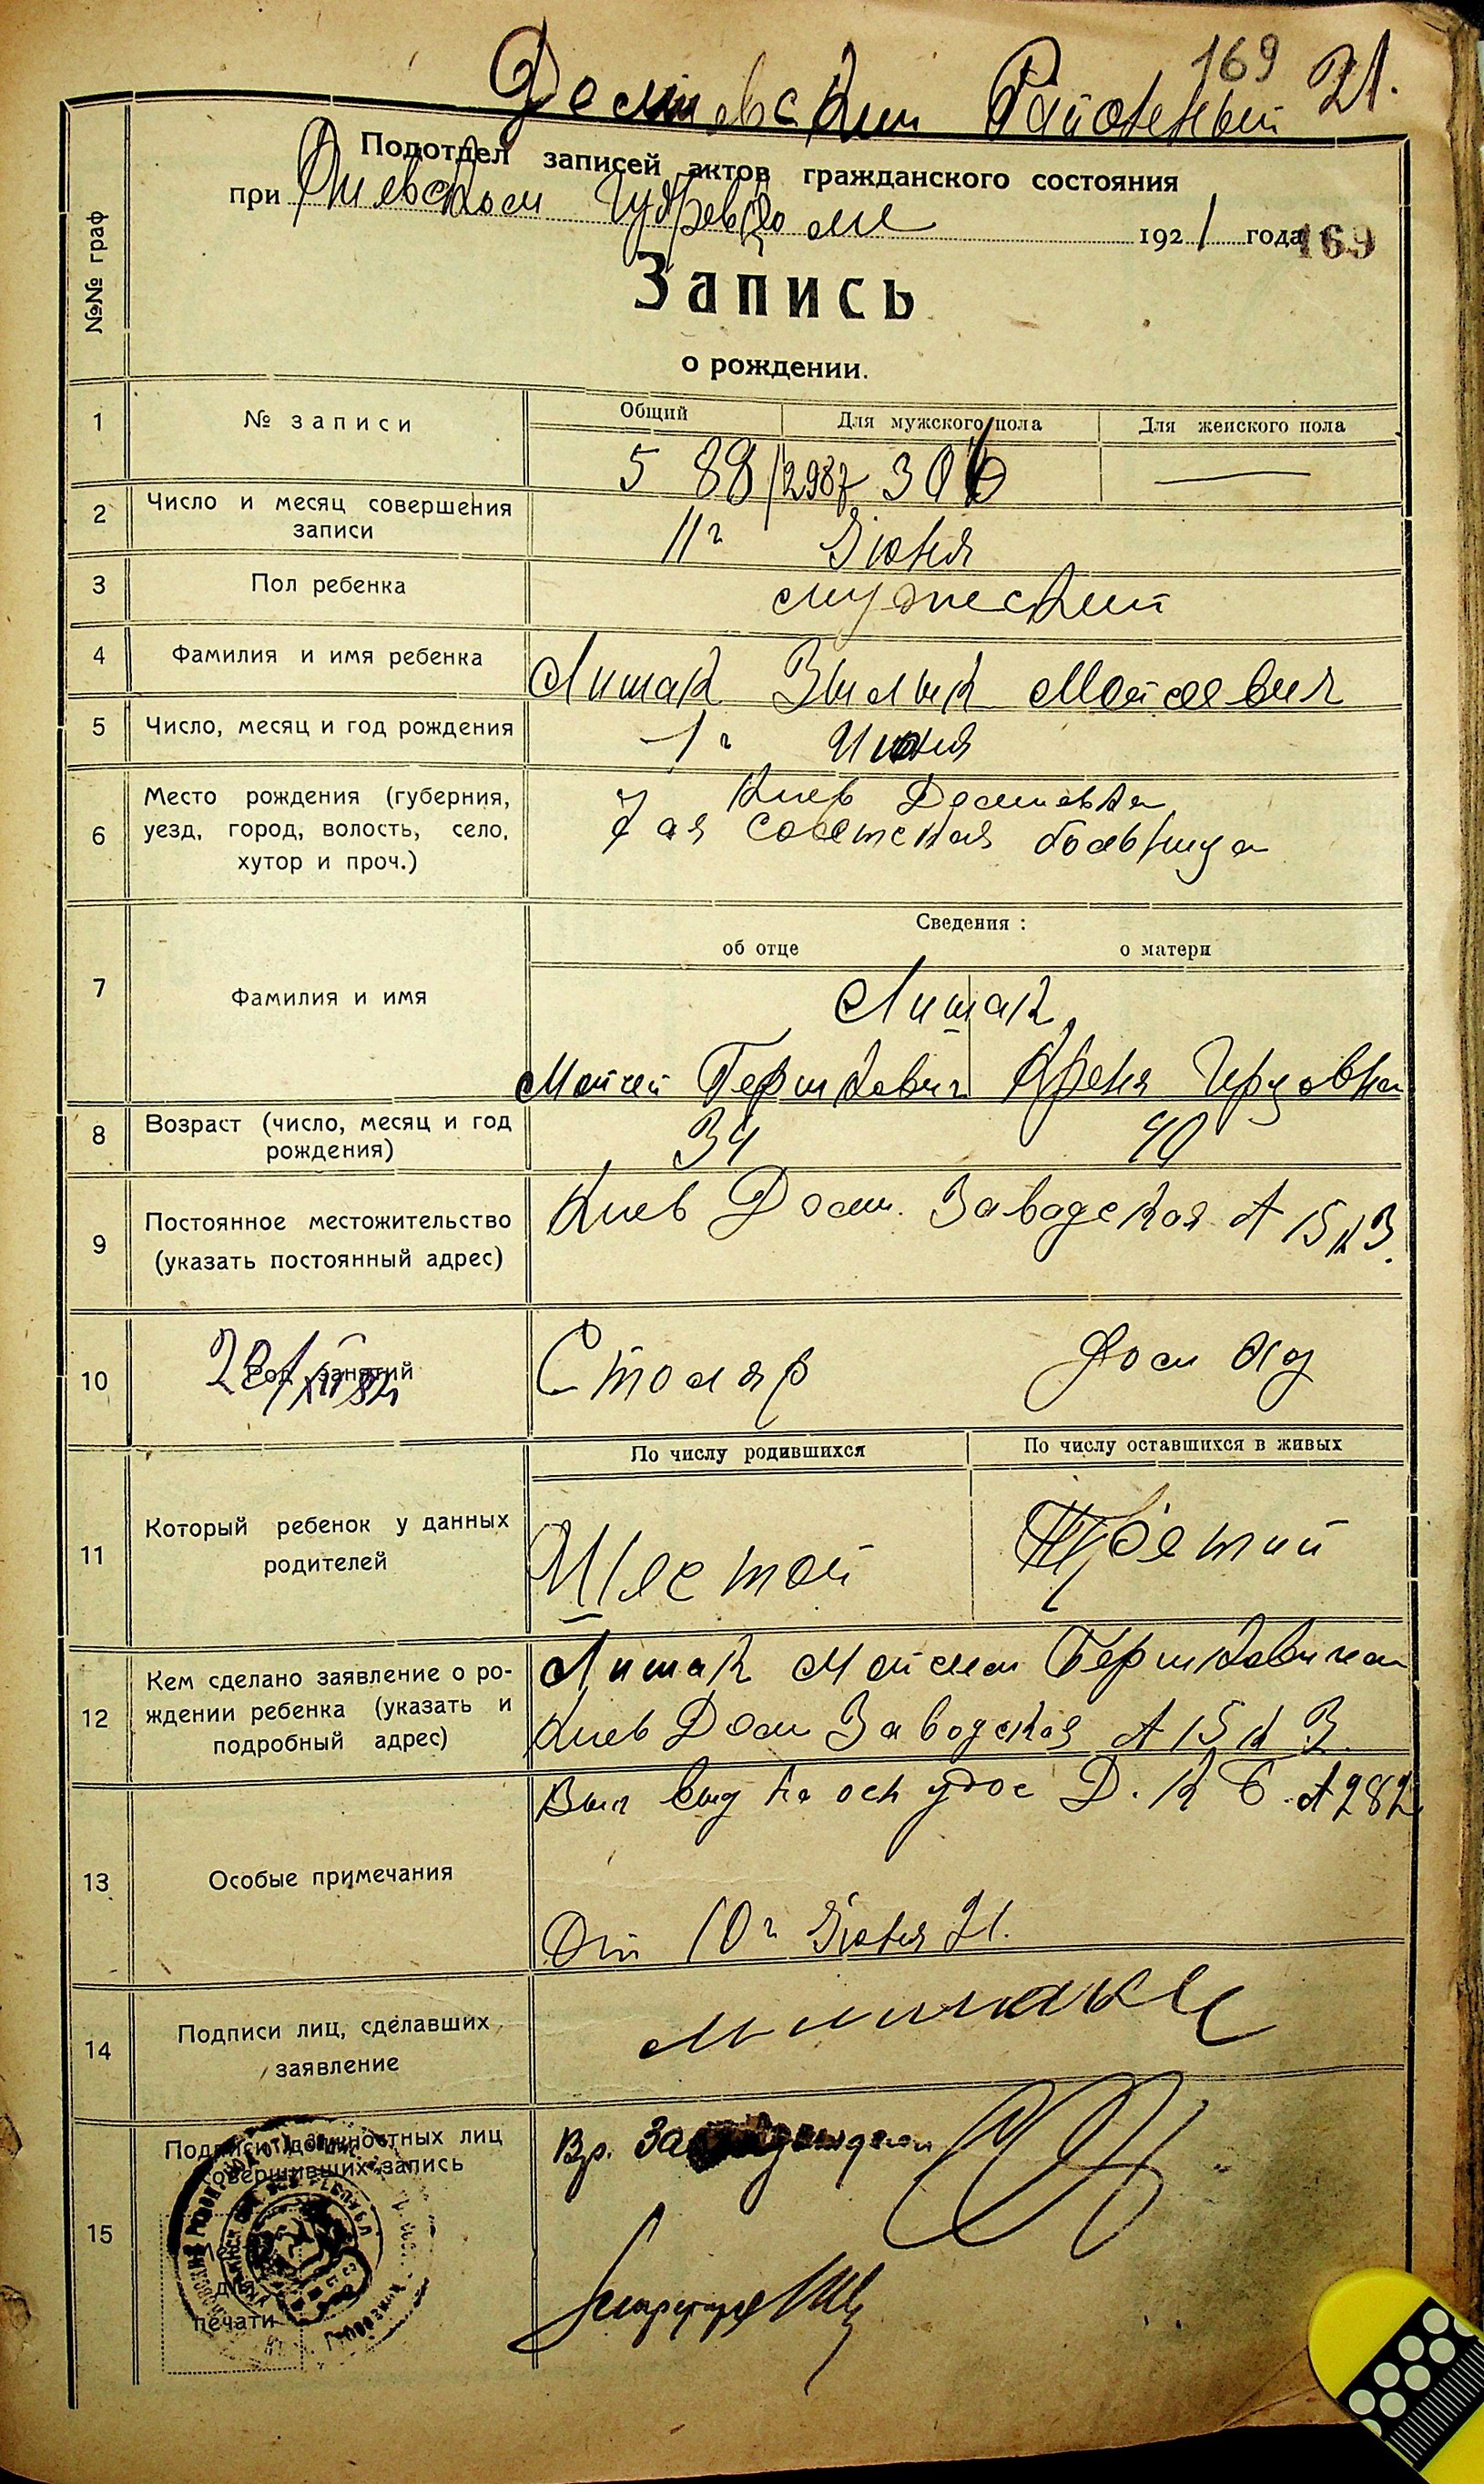 169 21.
Демиевский Районный
Подотдел записей актов гражданского состояния
при Киевском Губревкоме 1921 года
169
№№ граф
Запись
о рождении.
1 № записи
Общий Для мужского пола Для женского пола
588/2987 306 —
2 Число и месяц совершения записи
11го Июня
3 Пол ребенка
мужеский
4 Фамилия и имя ребенка
Лишак Зылик Мойсеевич
5 Число, месяц и год рождения
1го Июня
6 Место рождения (губерния,
уезд, город, волость, село,
хутор и проч.)
Киев Демиевка
7ая Советская больница
Сведения:
об отце о матери
7 Фамилия и имя
Лишак
Мойсей Гершкович Креня
8 Возраст (число, месяц и год
рождения)
34 40
9 Постоянное местожительство
(указать постоянный адрес)
Киев Дем. Заводская 15 к 3.
10 Род занятий
Столяр Дом хоз
По числу родившихся По числу оставшихся в живых
11 Который ребенок у данных
родителей
Шестой Третий
12 Кем сделано заявление о ро-
ждении ребенка (указать и
подробный адрес)
Лишак Мойсеем Гершковичем
Киев Дем Заводская 15 к 3
13 Особые примечания
Вып выд на осн удос Д. К Б. 282
От 10го Июня 21.
14 Подписи лиц, сделавших
заявление
15 Подписи должностных лиц
совершивших запись
Вр.
Секретарь
Место
для
печати